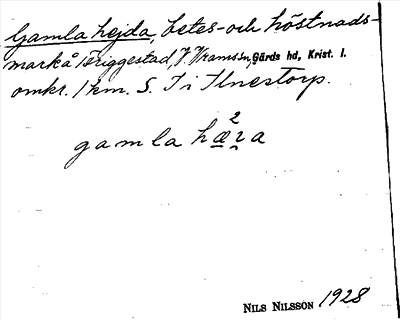 Gamla hejda, betes- och höstnads-
mark å Teriggestad, V. Vrams sn, Gärds hd, Krist. l.
omkr. 1 km. S. T i Ilnestorp.
gamla hæ²ɿa
NILS NILSSON 1928